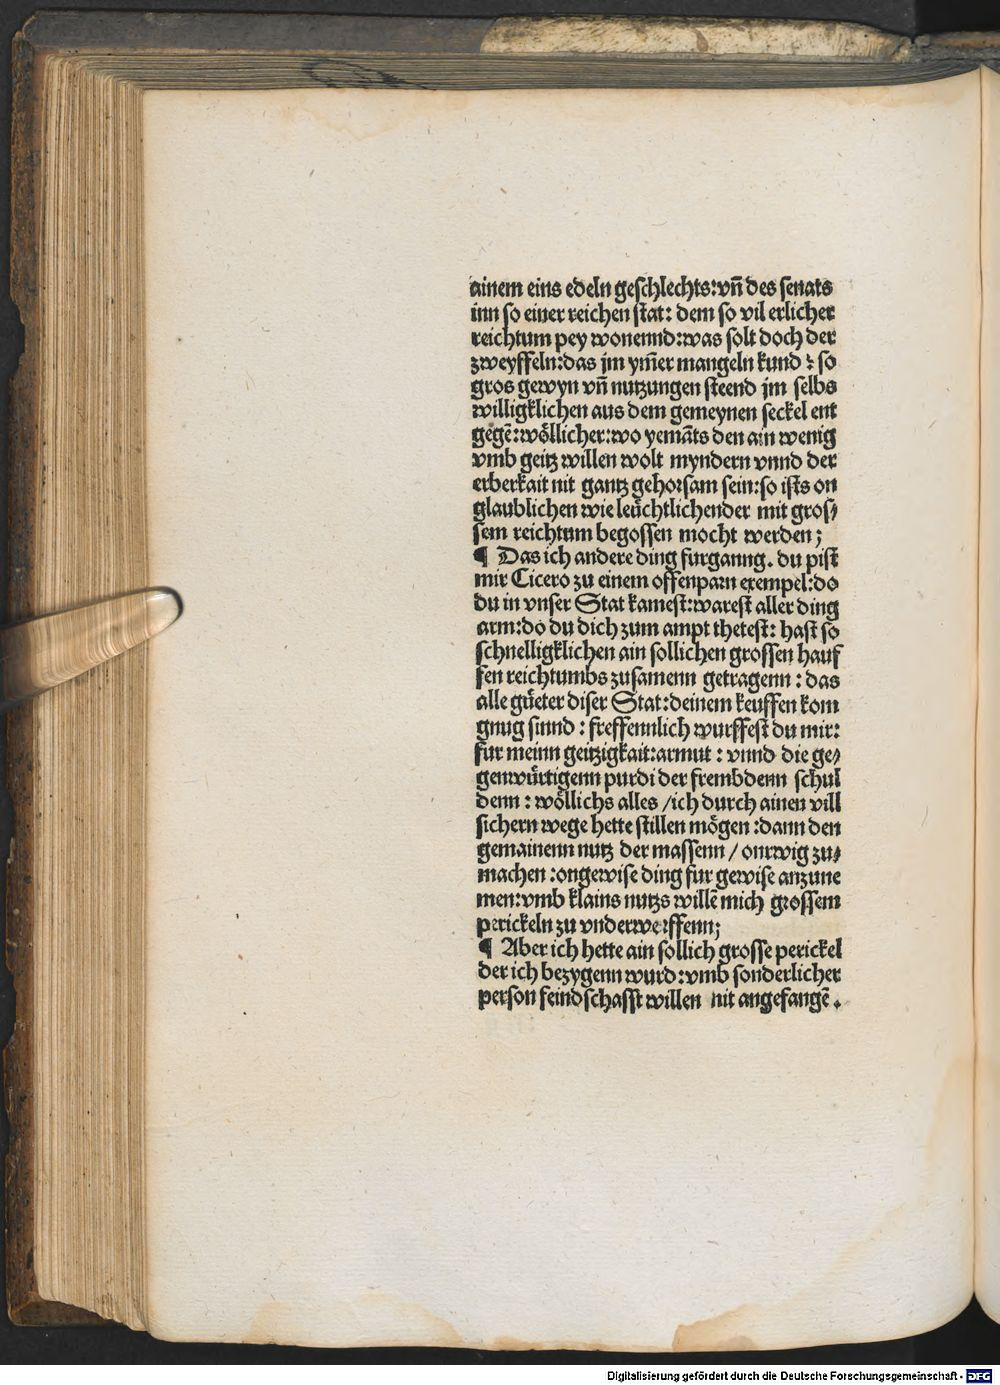 ainem eins edeln geschlechts: vn̄ des senats
inn so einer reichen stat: dem so vil erlicher
reichtum pey wonennd: was solt doch der
zweyffeln: das jm ym̄er mangeln kund ꝛ so
gros gewyn vn̄ nutzungen steend jm selbs
willigklichen aus dem gemeynen seckel ent
gegē: wöllicher: wo yemāts den ain wenig
vmb geitz willen wolt myndern vnnd der
erberkait nit gantz gehorsam sein: so ists on
glaublichen wie leüchtlichender mit gros⸗
sem reichtum begossen mocht werden;
¶ Das ich andere ding furganng. du pist
mir Cicero zu einem offenparn exempel: do
du in vnser Stat kamest: warest aller ding
arm: do du dich zum ampt thetest: hast so
schnelligklichen ain sollichen grossen hauf
fen reichtumbs zusamenn getragenn: das
alle güeter diser Stat: deinem keuffen kom
gnug sinnd: freffennlich wurffest du mir:
fur meinn geitzigkait: armut: vnnd die ge⸗
genwürtigenn purdi der frembdenn schul
denn: wöllichs alles / ich durch ainen vill
sichern wege hette stillen mögen: dann den
gemainenn nutz der massenn / onrwig zu⸗
machen: ongewise ding fur gewise anzune
men: vmb klains nutzs willē mich grossem
perickeln zu vnderwerffenn;
¶ Aber ich hette ain sollich grosse perickel
der ich bezygenn wurd: vmb sonderlicher
person feindschafft willen nit angefangē.
Digitalisierung gefördert durch die Deutsche Forschungsgemeinschaft - DFG